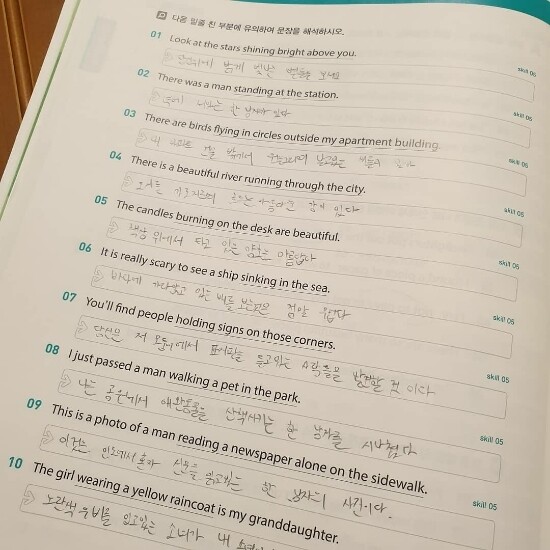 다음 밑줄 친 부분에 유의하여 문장을 해석하시오.
01 Look at the stars shining bright above you.
skill 05
밝게 빛나는 별들을
02 There was a man standing at the station.
skill 05
한 남자가 있다
03 There are birds flying in circles outside my apartment building.
skill 05
내 아파트 건물 밖에서
04 There is a beautiful river running through the city.
skill 05
도시를 가로지르며 흐르는 아름다운 강이 있다
05 The candles burning on the desk are beautiful.
skill 05
책상 위에서 타고 있는 양초는 아름답다
06 It is really scary to see a ship sinking in the sea.
skill 05
바다에 가라앉고 있는 배를 보는것은 정말 무섭다
07 You'll find people holding signs on those corners.
skill 05
당신은 저 모퉁이에서 표지판을 들고있는 사람들을 발견할 것 이다
08 I just passed a man walking a pet in the park.
skill 05
나는 공원에서 애완동물을 산책시키는 한 남자를 지나쳤다
09 This is a photo of a man reading a newspaper alone on the sidewalk.
skill 05
이것은 인도에서 혼자 신문을 읽고있는 한 남자의 사진이다.
10 The girl wearing a yellow raincoat is my granddaughter.
skill 05
노란색 우비를 입고있는 소녀가 내